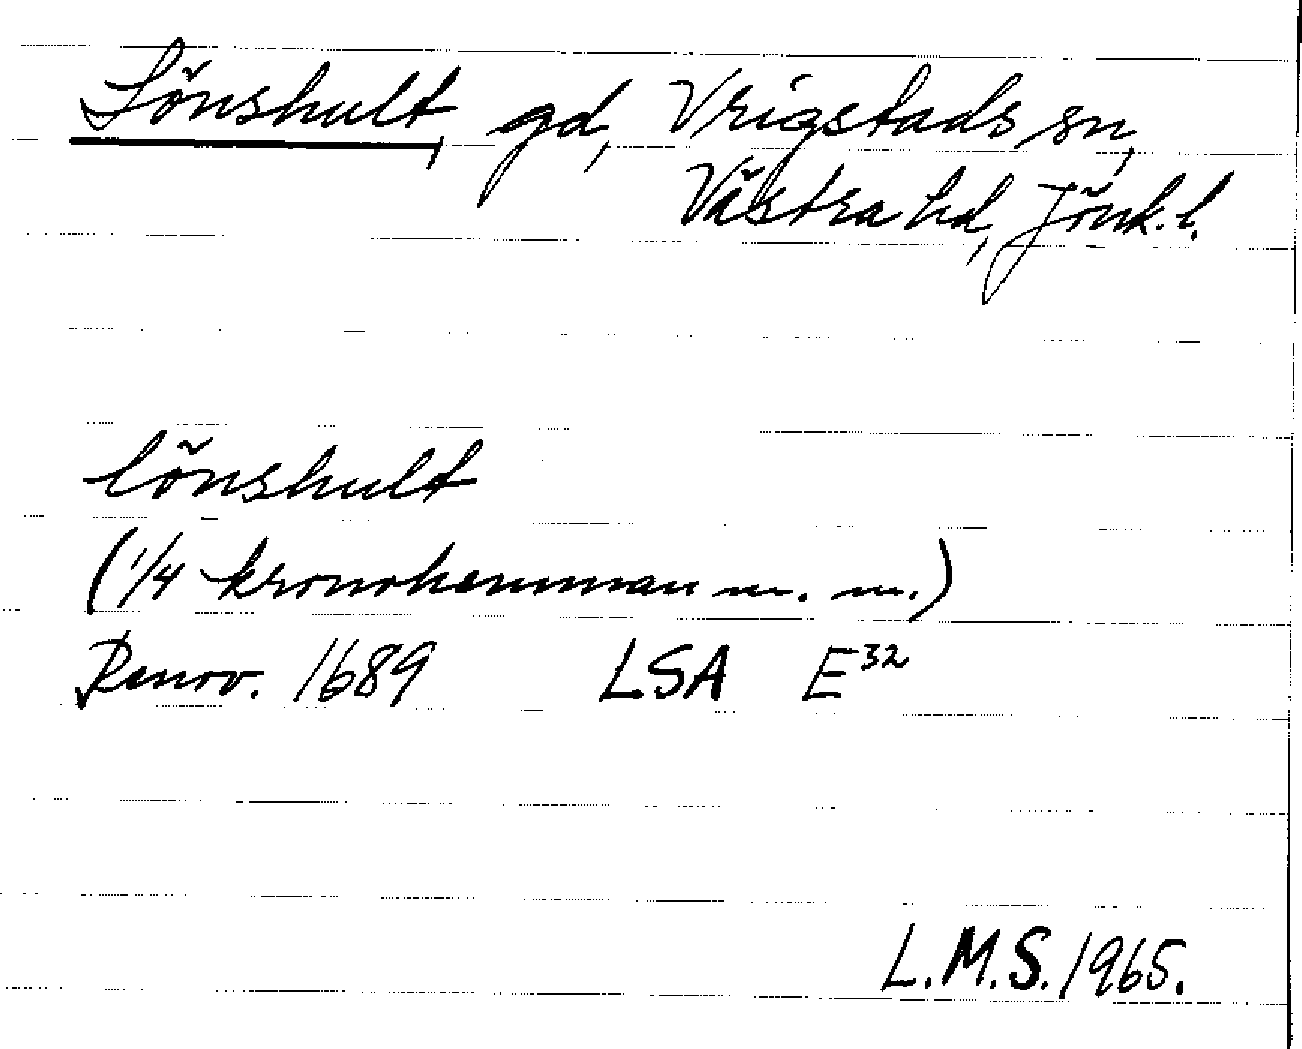 Lönshult, gd, Vrigstads sn,
Västra hd, Jönk. l.
lönshult
(1/4 kronohemman m. m.)
Renov. 1689 LSA E³²
L.M.S. 1965.